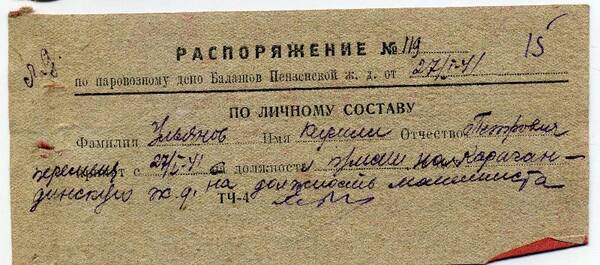 15
РАСПОРЯЖЕНИЕ № 119
по паровозному депо Балашов Пензенской ж. д. от 27/V-41
ПО ЛИЧНОМУ СОСТАВУ
Фамилия Ульянов Имя Кирилл Отчество Петрович
с 27/V-41 должности на Караган-
динскую ж.д. на должность машиниста
ТЧ-4